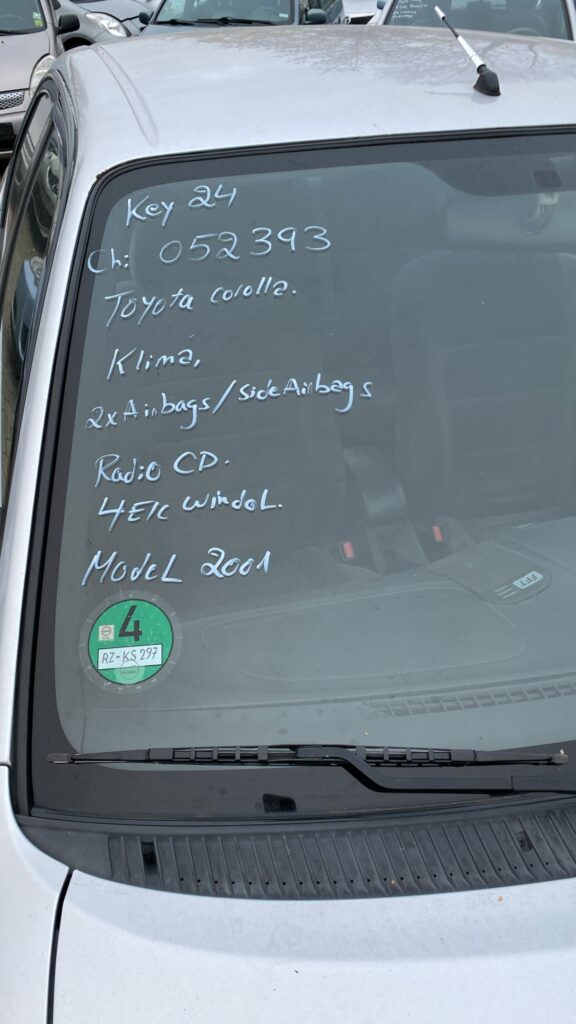 Key 24
Ch: 052393
Toyota corolla.
Klima,
2x Airbags/side Airbags
Radio CD.
4 Elc windoL.
ModeL 2001
4
RZ-KS 297